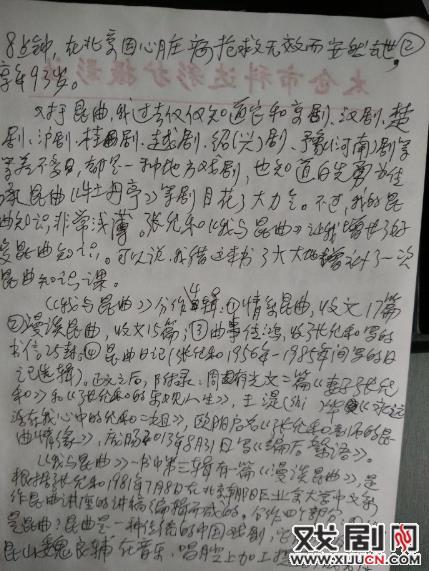 8点钟,在北京因心脏病抢救无效而安然去世,②
享年93岁。
对于昆曲,我过去仅仅知道它和京剧、汉剧、楚
剧、沪剧、桂剧、越剧、绍(兴)剧、豫(河南)剧等
等名不同,都是一种地方戏剧,也知道白先勇为继
承昆曲《牡丹亭》等剧目花了大力气。不过,我的昆
曲知识,非常浅薄。张允和《我与昆曲》让我增长了好
昆曲知识。可以说,我借这本书了大大地增补了一次
昆曲知识课。
《我与昆曲》分作4辑:①情系昆曲,收文17篇
②漫谈昆曲,收文15篇;③曲事往鸿,收张允和写的
书信;④昆曲日记(张允和1956年-1985年间写的日
记选辑)。正文之后,附录:周有光文二篇《妻子张允
和》和《张允和的乐观人生》,王湜华《永远
活在我心中的允和二姐》,欧阳启名《张允和老师的昆
曲情缘》,13年8月31日写《编后赘语》。
《我与昆曲》一书中第二辑有一篇《漫谈昆曲》,是
根据张允和1981年7月8日在北京大学中文系
作昆曲讲座的讲稿编而成的。分作四个部分:
是昆曲?昆曲是一种传统的中国戏剧,它
昆山魏良辅在音乐、唱腔上加工
太仓市科达彩扩摄影
戏剧网
www.XIJUCN.COM